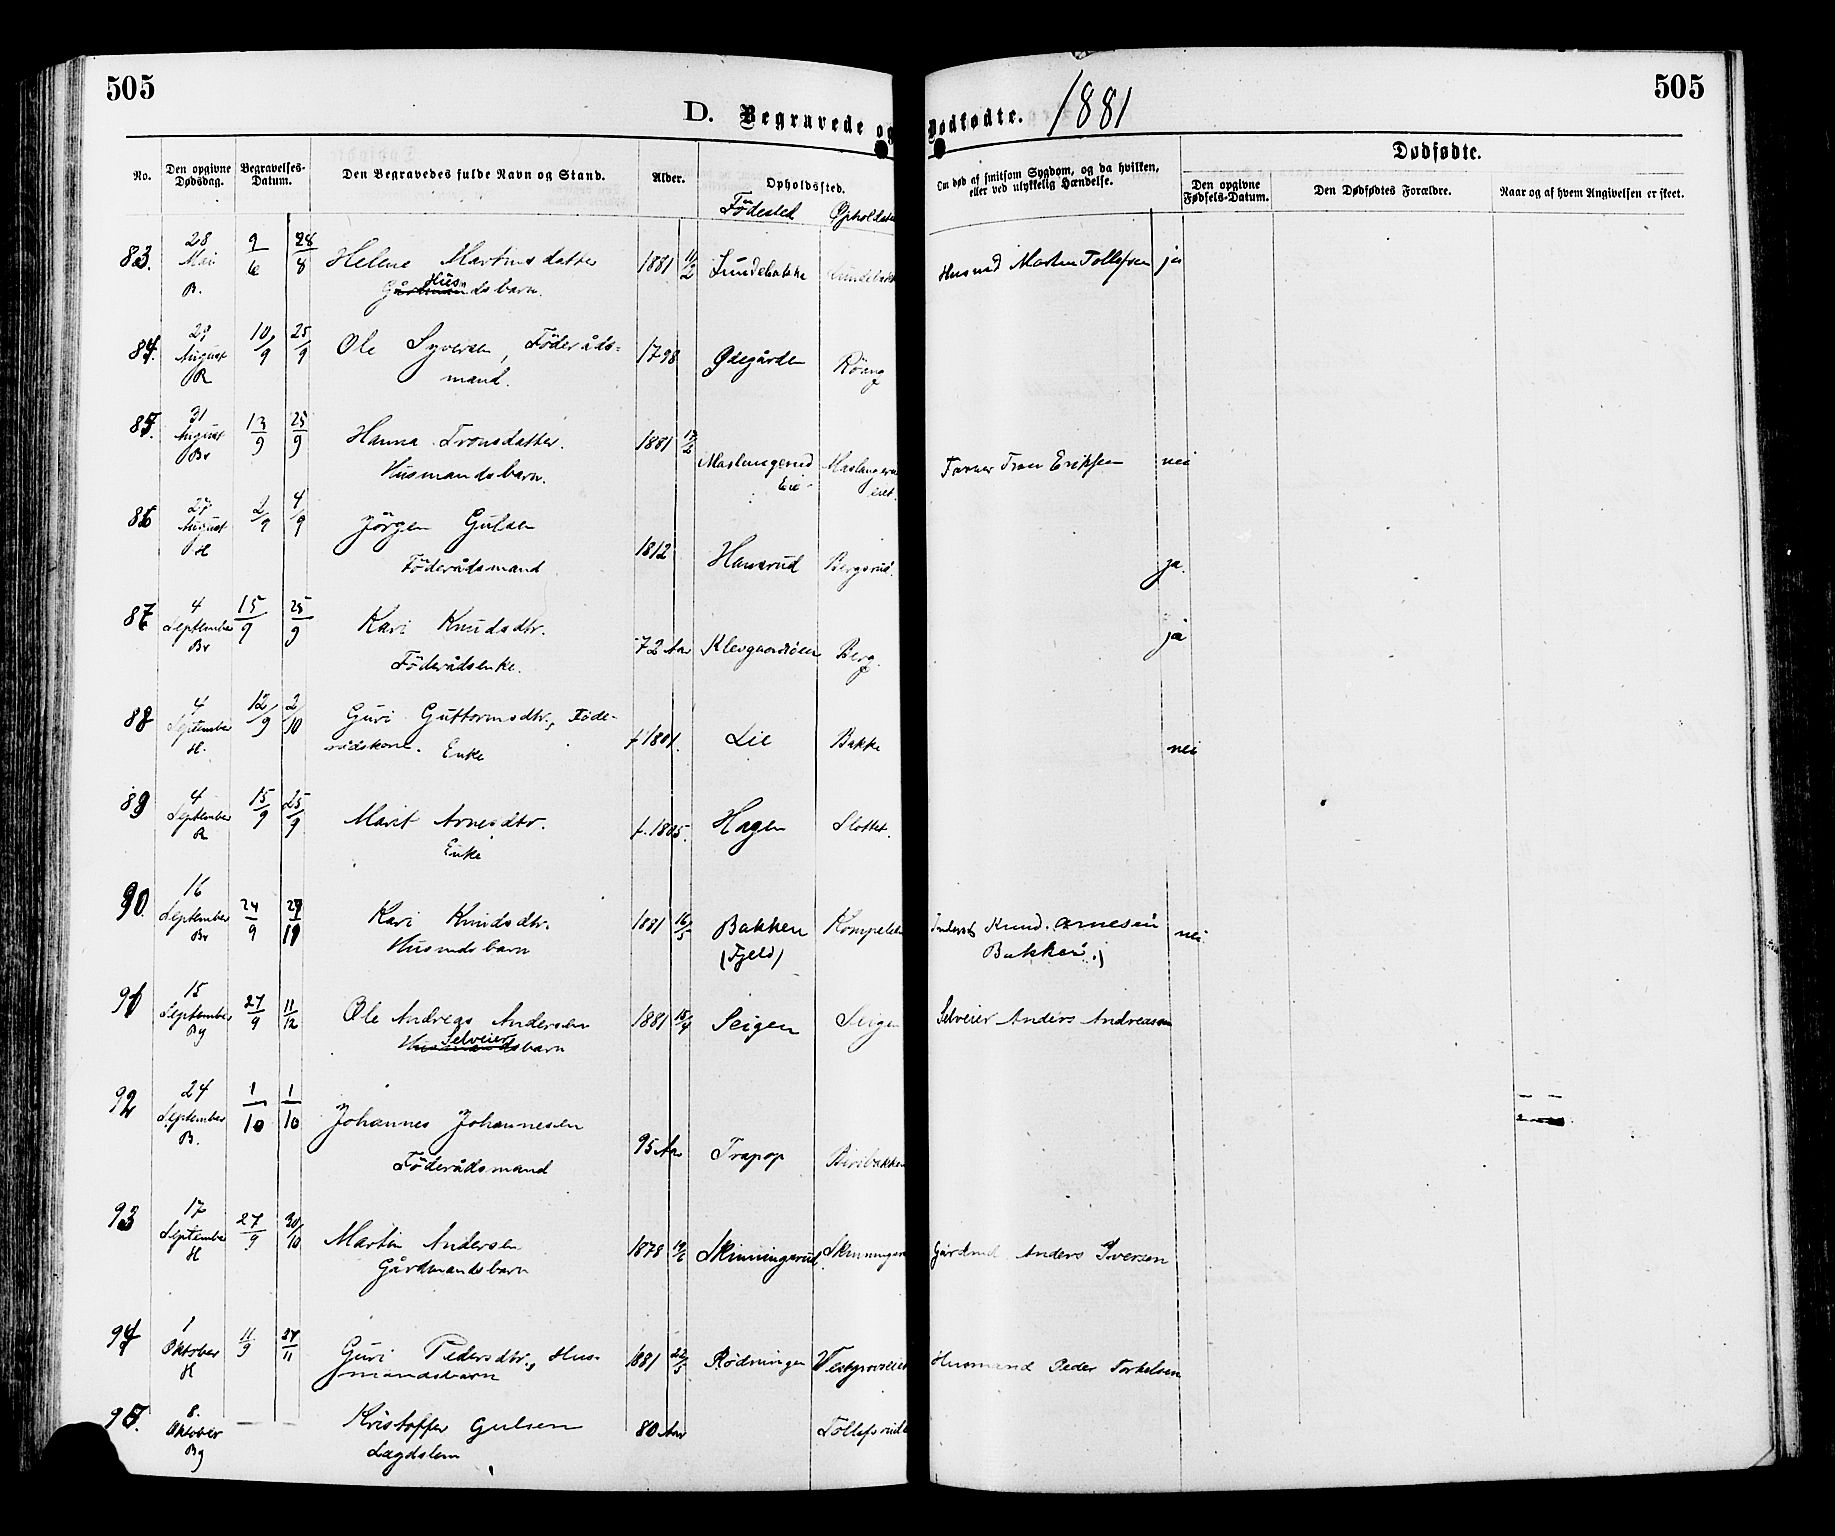 505
505
D. Begravede og Dødfødte. 1881
No.
Den opgivne Dødsdag.
Begravelses-Datum.
Den Begravedes fulde Navn og Stand.
Alder.
Opholdssted.
Födested
Opholdsst
Om død af smitsom Sygdom, og da hvilken, eller ved ulykkelig Hændelse.
Dødfødte.
Den opgivne Fødsels-Datum.
Den Dødfødtes Forældre.
Naar og af hvem Angivelsen er skeet.
83. 28 Mai B. 9/6 28/8 Helene Martinsdatter 1881 11/2 Lundebakke Lundebakk Husmd Martin Tollefsen ja
Gårdmandsbarn. Hus
84. 29 August R 10/9 25/9 Ole Syversen, Föderåds- 1798 Ødegården Röang
mand.
85. 31 August Br 13/9 25/9 Hanna Tronsdatter. 1881 Maslangerud Eie Maslangerud eiet. Tron Eriksen nei
Husmandsbarn.
86 27 August H 2/9 4/9 Jörgen Gulsen 1812 Hansrud Bergsrud. ja.
Föderådsmand
87. 4 September Br 15/9 25/9 Kari Knudsdtr. 72 Aar Klevgaardseien Berg. ja
Föderådsenke.
88 4 September H. 12/9 2/10 Guri Guttormsdtr., Föde- f. 1801. Lie Bakke nei
rådskone. Enke
89 4 September R 15/9 25/9 Marit Arnesdtr. f. 1805. Hagen Slottet.
Enke
90. 16 September Br 24/9 Kari Knudsdtr. 1881 16/5 Bakken Inderst Knud Arnesen nei
Husmdsbarn (Fjeld) Bakken.)
91 15 September By 27/9 11/12 Ole Andreas Andersen 1881 18/4 Seigen Seigen Selveier Anders Andreasen
Husmandsbarn Selveier
92 24 September B. 1/10 1/10 Johannes Johannesen 95 Aar Trapop Biribakken
Föderådsmand
93 17 September H 27/9 30/10 Martin Andersen 1878 Skinningsrud Skinningsru Gårdmd Anders Iversen
Gårdmandsbarn
94 1 Oktober H 11/9 27/11 Guri Pedersdtr., Hus- 1881 22/5 Rödningen Husmand Peder Torkelsen
mandsbarn
95. 8. Oktober By — — Kristoffer Gulsen 80 Aar Tollefsrud
Lægdslem